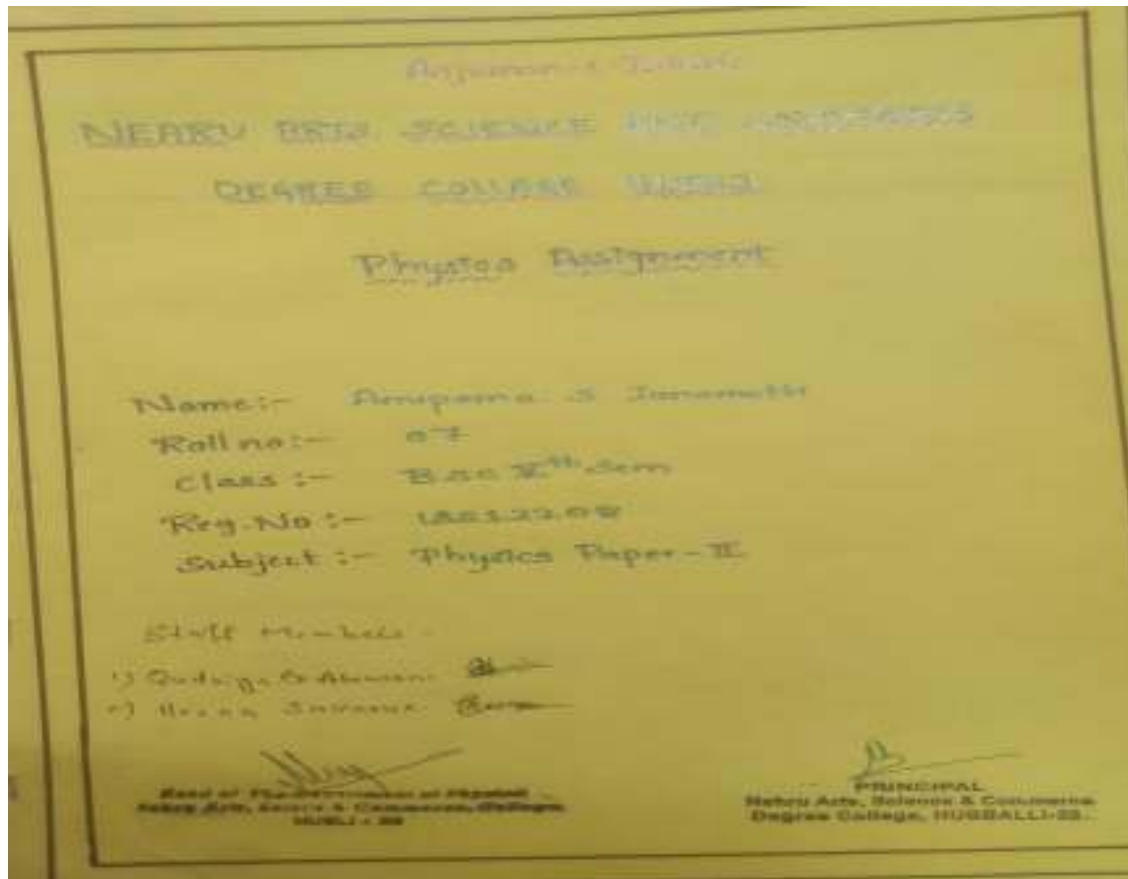 Anjuman-e-Islam's
NEHRU ARTS SCIENCE AND COMMERCE
DEGREE COLLAGE HUBLI
Physics Assignment
Name:- Anupama S
Roll no:- 07
Class :- B.sc Vth sem
Reg. No :-
Subject :- Physics Paper - II
Staff Members
1)
2)
Head of The Department of Physics
Nehru Arts, Science & Commerce, College,
HUBLI -
PRINCIPAL
Nehru Arts, Science & Commerce
Degree College, HUBBALLI-